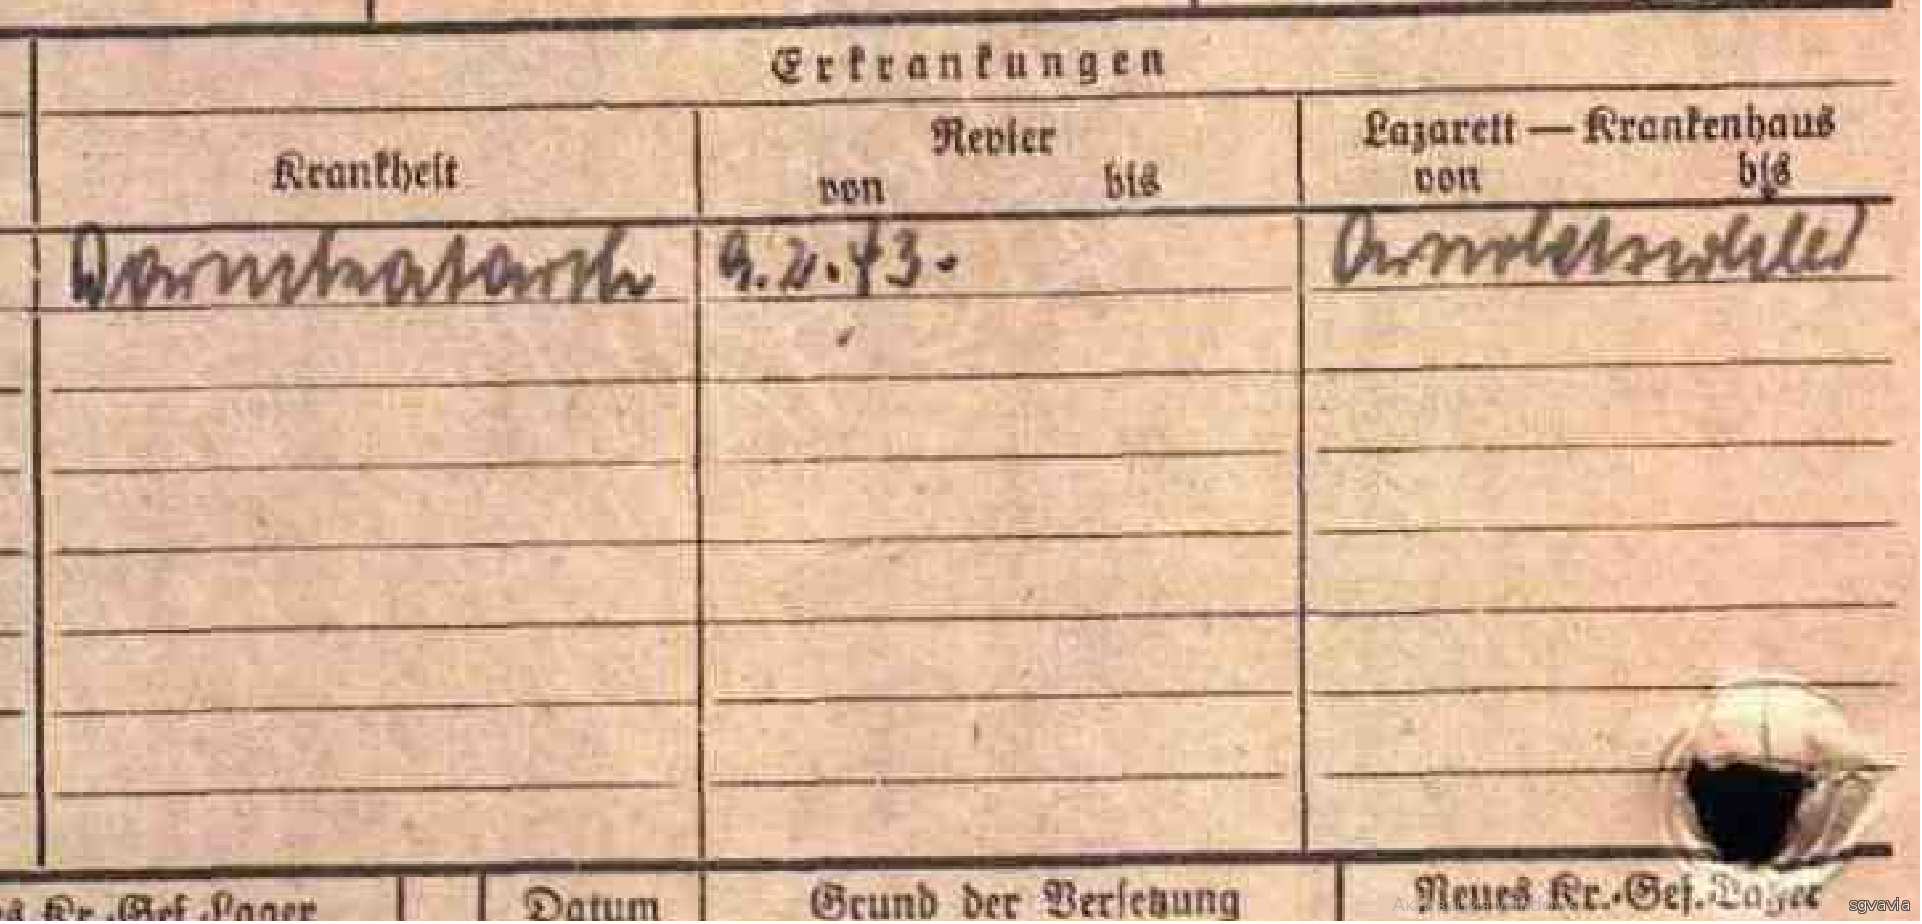 Erkrankungen
Krankheit
Revier
von bis
Lazarett — Krankenhaus
von bis
Darmkatarrh 9.2.43. Arnoldsweiler
Kr.-Gef.-Lager
Datum
Grund der Versetzung
Neues Kr.-Gef.-Lager
sgvavia